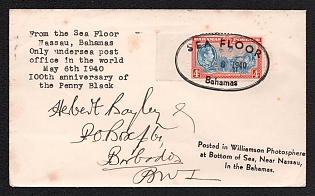 From the Sea Floor
Nassau, Bahamas
Only undersea post
office in the world
May 6th 1940
100th anniversary of
the Penny Black
SEA FLOOR
1940
Bahamas
BAHAMAS
4d
Herbert Bayley
P O Box
Barbados
BWI
Posted in Williamson Photosphere
at Bottom of Sea, Near Nassau,
in the Bahamas.